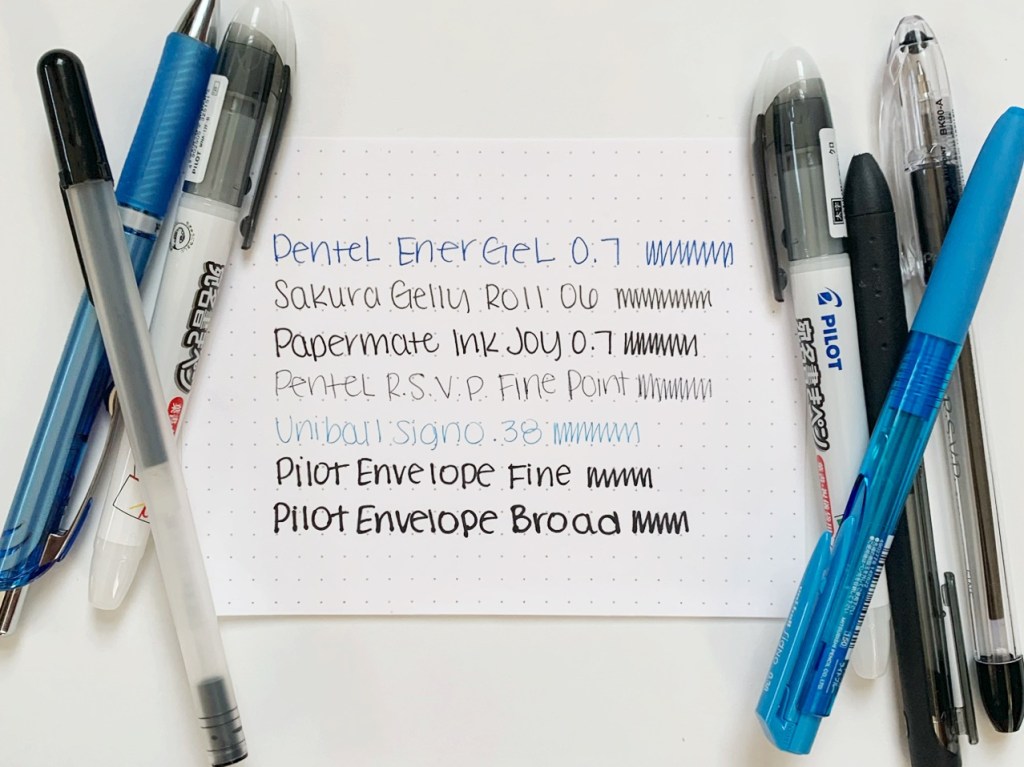 Pentel EnerGel 0.7
Sakura Gelly Roll 06
Papermate InkJoy 0.7
Pentel R.S.V.P. Fine Point
Uniball Signo .38
Pilot Envelope Fine
Pilot Envelope Broad
PILOT
BK90-A
R.S.V.P.